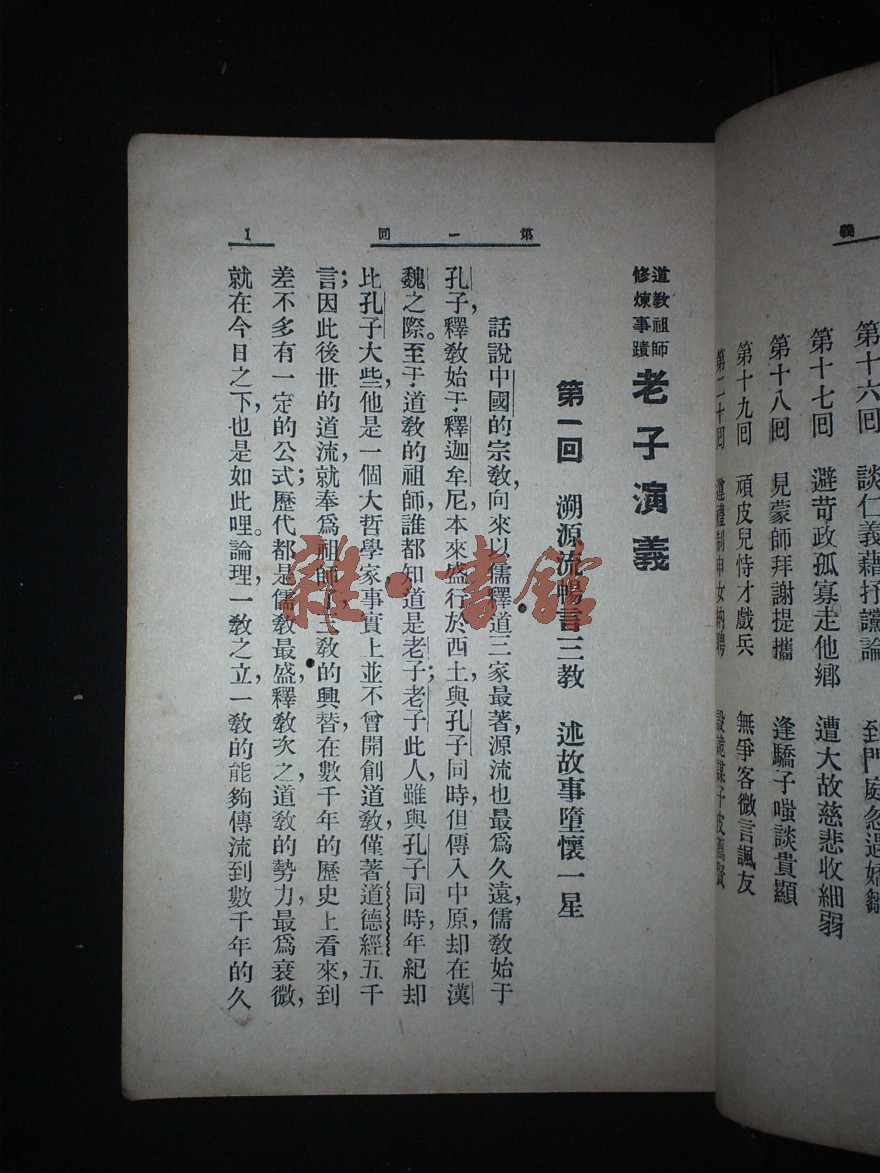 義
第十六回 談仁義藉抒讜論
第十七回 避苛政孤寡走他鄉 遭大故慈悲收細弱
第十八回 見蒙師拜謝提攜 逢驕子嗤談貴顯
第十九回 頑皮兒恃才戲兵 無爭客微言諷友
第二十回
第一回
1
道教祖師
修煉事蹟
老子演義
第一回 溯源流暢言三教 述故事墮懷一星
話說中國的宗教，向來以儒釋道三家最著，源流也最爲久遠，儒教始于
孔子，釋教始于釋迦牟尼，本來盛行於西土，與孔子同時，但傳入中原，却在漢
魏之際。至于道教的祖師，誰都知道是老子；老子此人，雖與孔子同時，年紀却
比孔子大些，他是一個大哲學家，事實上並不曾開創道教，僅著道德經五千
言；因此後世的道流，就奉爲祖師了。三教的興替，在數千年的歷史上看來，到
差不多有一定的公式；歷代都是儒教最盛，釋教次之，道教的勢力，最爲衰微，
就在今日之下，也是如此哩。論理，一教之立，一教的能夠傳流到數千年的久
雜·書館